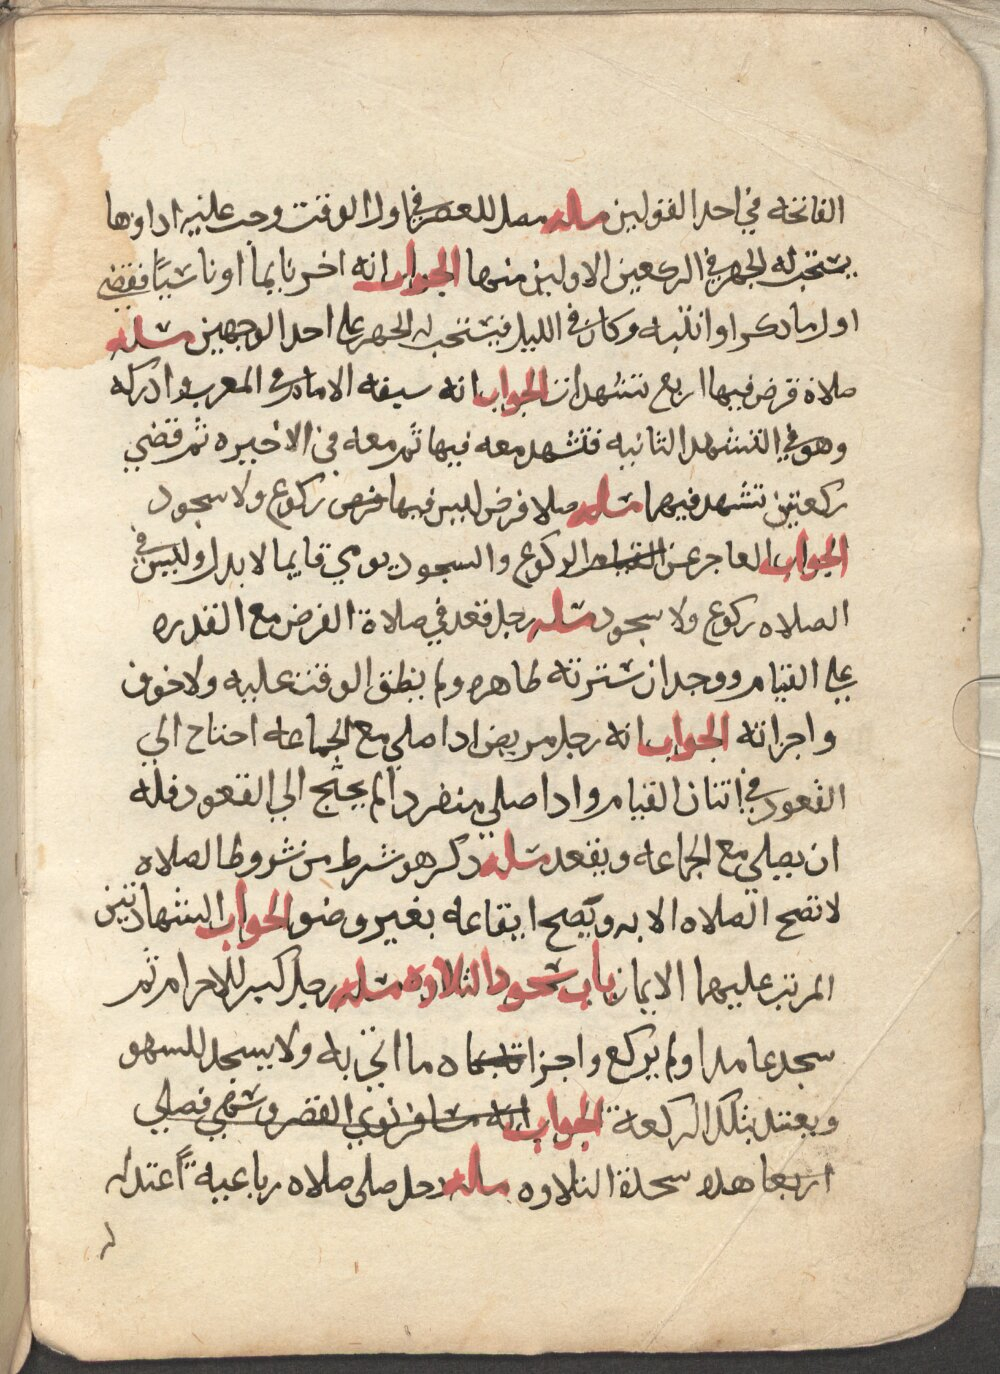 الفاتحه في احد القولين مسله مصل للعصر في اول الوقت وجب عليه اداوها
يستحب له الجهر في الركعين الاولين منها الجواب انه اخر نايما او ناسيًا فقضى
اول ما ذكر او انتبه وكان في الليل فيستحب له الجهر على احد الوجهين مسله
صلاة فرض فيها اربع تشهدات الجواب انه سبقه الامام في المغرب وادركه
وهو في التشهد الثانيه فتشهد معه فيها ثم معه في الاخيره ثم قضى
ركعتين تشهد فيهما مسله صلا فرض ليس فيها فرض ركوع ولا سجود
الجواب العاجز عن القيام الركوع والسجود يومي قايما لا بدل وليس في
الصلاه ركوع ولا سجود مسله رجل قعد في صلاة الفرض مع القدره
على القيام ووجدان سترته طاهره ولم يطق الوقت عليه ولا خوف
واجزاته الجواب انه رجل مريض اذا صلى مع الجماعه احتاج الى
القعود في اثنان القيام واذا صلى منفردا لم يحتج الى القعود فله
ان يصلي مع الجماعه ويقعد مسله ذكر هو شرط من شروط الصلاه
لا تصح الصلاه الا به ويصح ايقاعه بغير وضو الجواب الشهادتين
المرتب عليهما الايمان باب سجود التلاوه مسله رجل كبر للاحرام ثم
سجد عامدا ولم يركع واجزاه ما اتى به ولا يسجد للسهو
ويعتد بتلك الركعة الجواب انه مسافر نوى القصر وسهى فصلى
اربعا هذه سجدة التلاوه مسله رجل صلى صلاه رباعية اعتد له